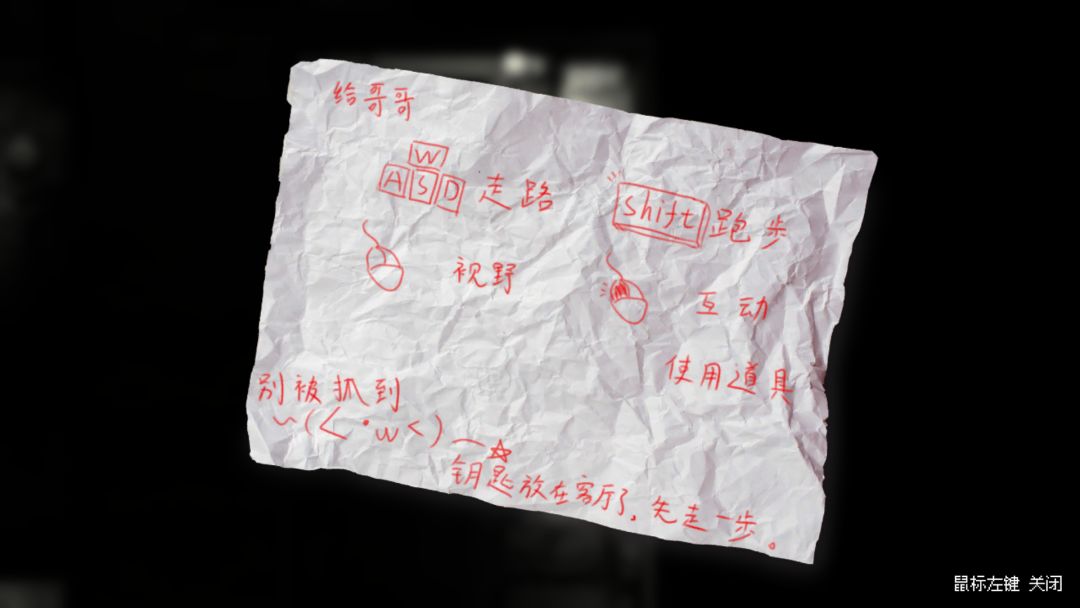 给哥哥
W
A S D 走路
Shift 跑步
视野
互动
使用道具
别被抓到
~(<•w<)—☆
钥匙放在客厅了,先走一步。
鼠标左键 关闭